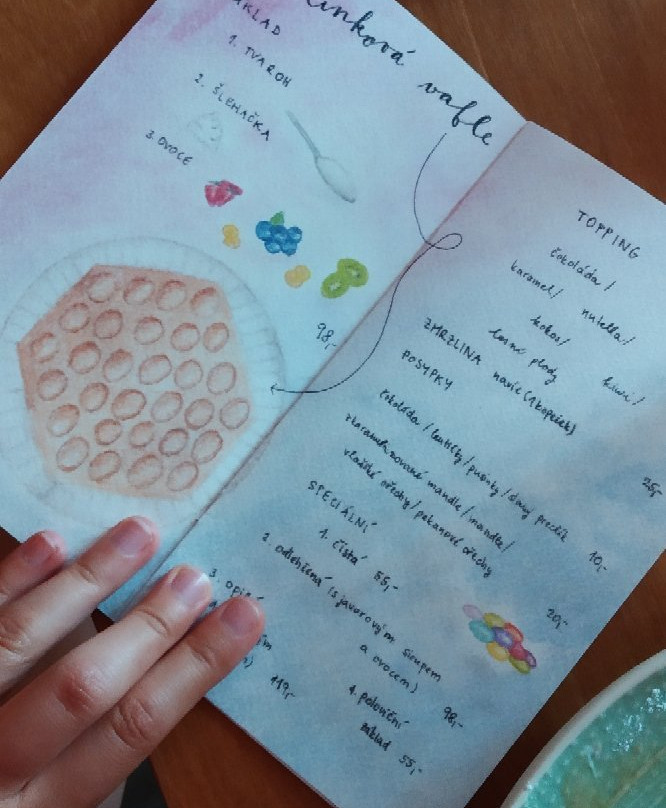 vafle
1. TVAROH
2. ŠLEHAČKA
3. OVOCE
98,-
TOPPING
čokoláda/
karamel/ nutella/
kokos/ kiwi/
lesní plody
25,-
ZMRZLINA navíc (1 kopeček)
POSYPKY
10,-
čokoláda/lentilky/pusinky/slaný preclík
zkaramelizované mandle/mandle/
vlašské ořechy/pekanové ořechy
20,-
SPECIÁLNÍ
1. čistá 55,-
2. odlehčená (s javorovým sirupem
a ovocem)
98,-
3.
119,-
4. poloviční
základ 55,-